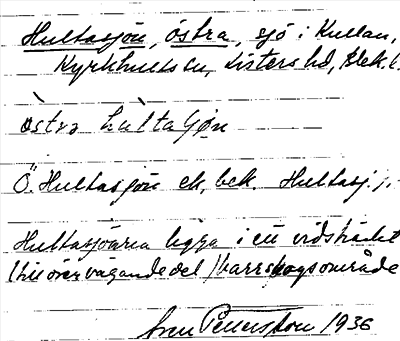 Hultasjön, östra, sjö i Kullan,
Kyrkhults sn, Listers hd, Blek. l.
östra hùltaʃøn
Ö. Hultasjön ek, bek. Hultasj. j.
Hultasjöarna ligga i ett vidsträckt
(till övervägande del) barrskogsområde
Sven 1936